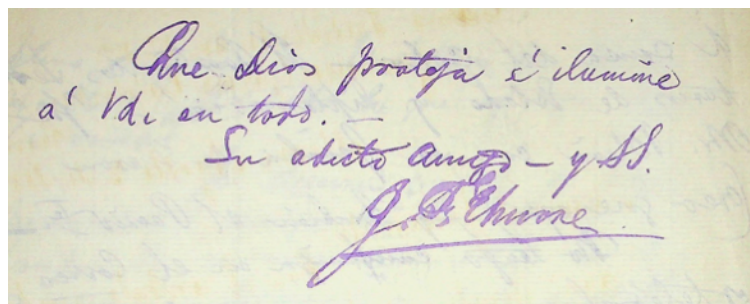 Que Dios proteja é ilumine
á Vd. en todo. —
Su adicto amigo — y SS.